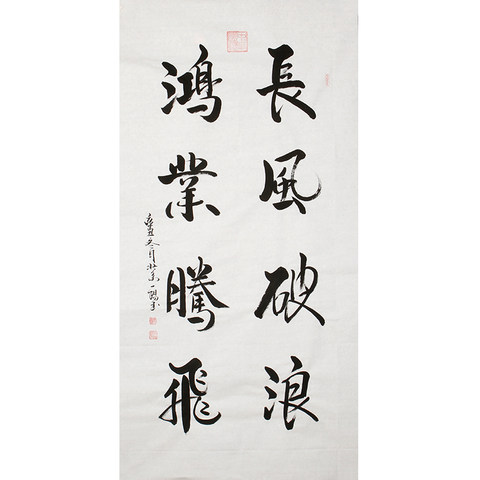 長風破浪
鴻業騰飛